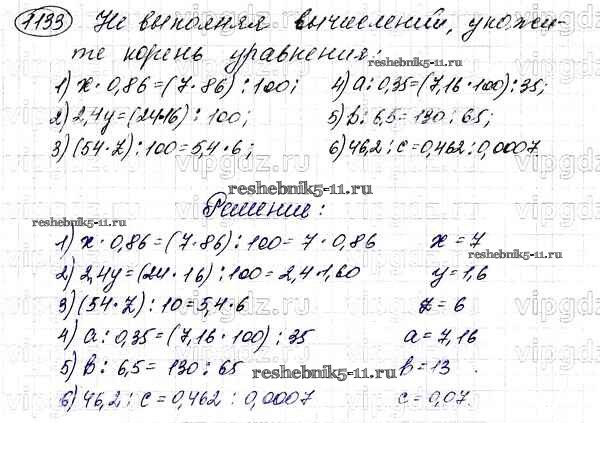 1133 Не выполняя вычислений, укажи-
те корень уравнения:
1) x · 0,86 = (7 · 86) : 100; 4) a : 0,35 = (7,16 · 100) : 35;
2) 2,4y = (24·16) : 100; 5) b : 6,5 = 130 : 65;
3) (54 · z) : 100 = 5,4 · 6; 6) 46,2 : c = 0,462 : 0,0007
reshebnik5-11.ru
Решение:
1) x · 0,86 = (7 · 86) : 100 = 7 · 0,86 x = 7
2) 2,4y = (24 · 16) : 100 = 2,4 · 1,60 y = 1,6
3) (54 · z) : 10 = 5,4 · 6 z = 6
4) a : 0,35 = (7,16 · 100) : 35 a = 7,16
5) b : 6,5 = 130 : 65 b = 13
6) 46,2 : c = 0,462 : 0,0007 c = 0,07
reshebnik5-11.ru
reshebnik5-11.ru
reshebnik5-11.ru
reshebnik5-11.ru
reshebnik5-11.ru
vipgdz